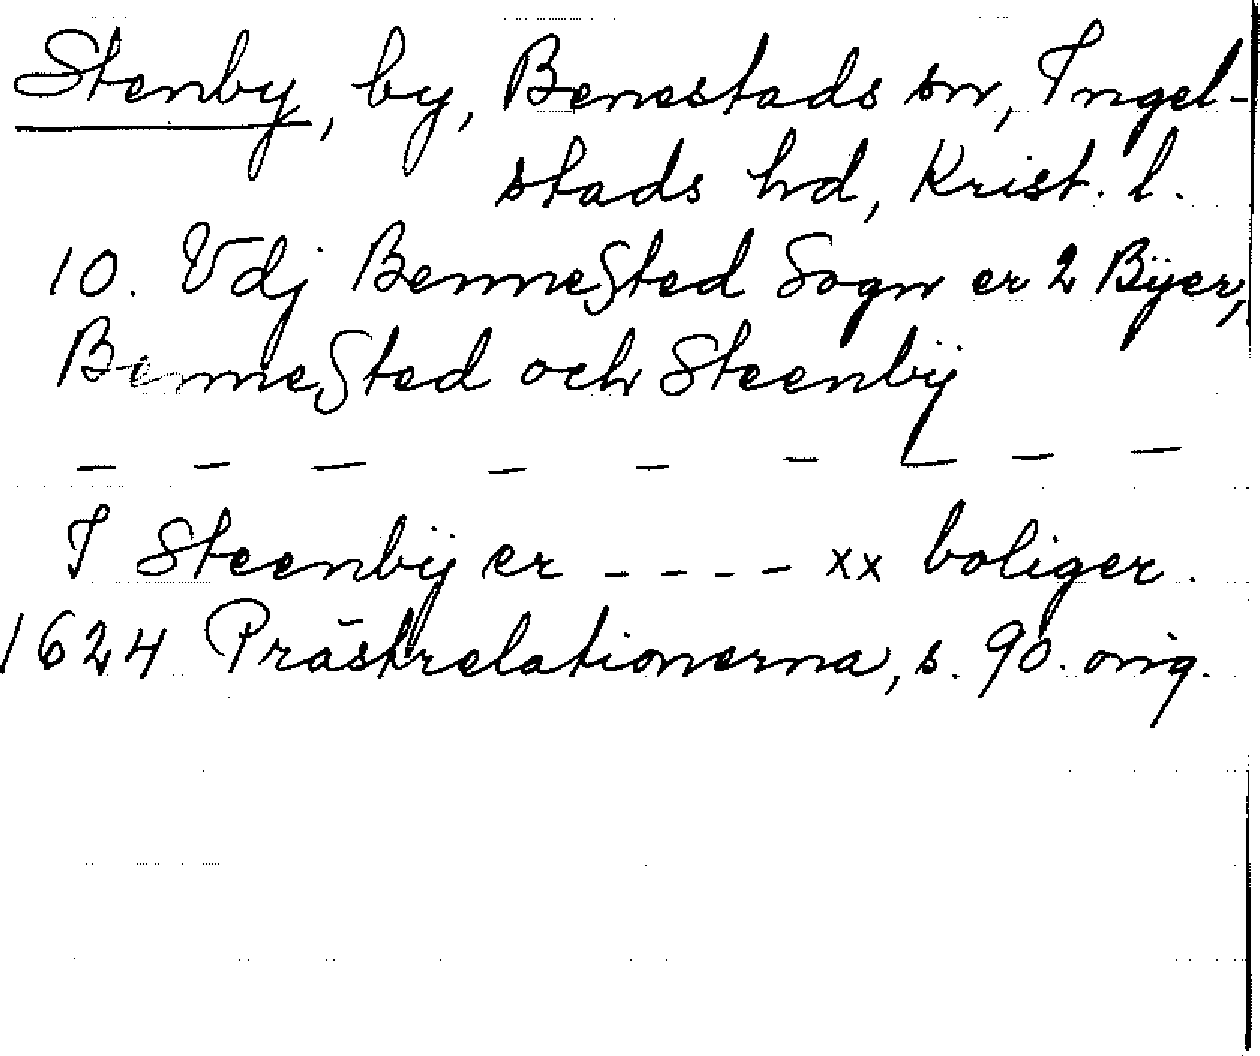 Stenby, by, Benestads sn, Ingel-
stads hd, Krist. l.
10. Vdj Bennested Sogn er 2 Bÿer,
Bennested och Steenbÿ
– – – – – – – – –
I Steenbÿ er – – – – xx boliger.
1624 Prästrelationerna, s. 90. orig.